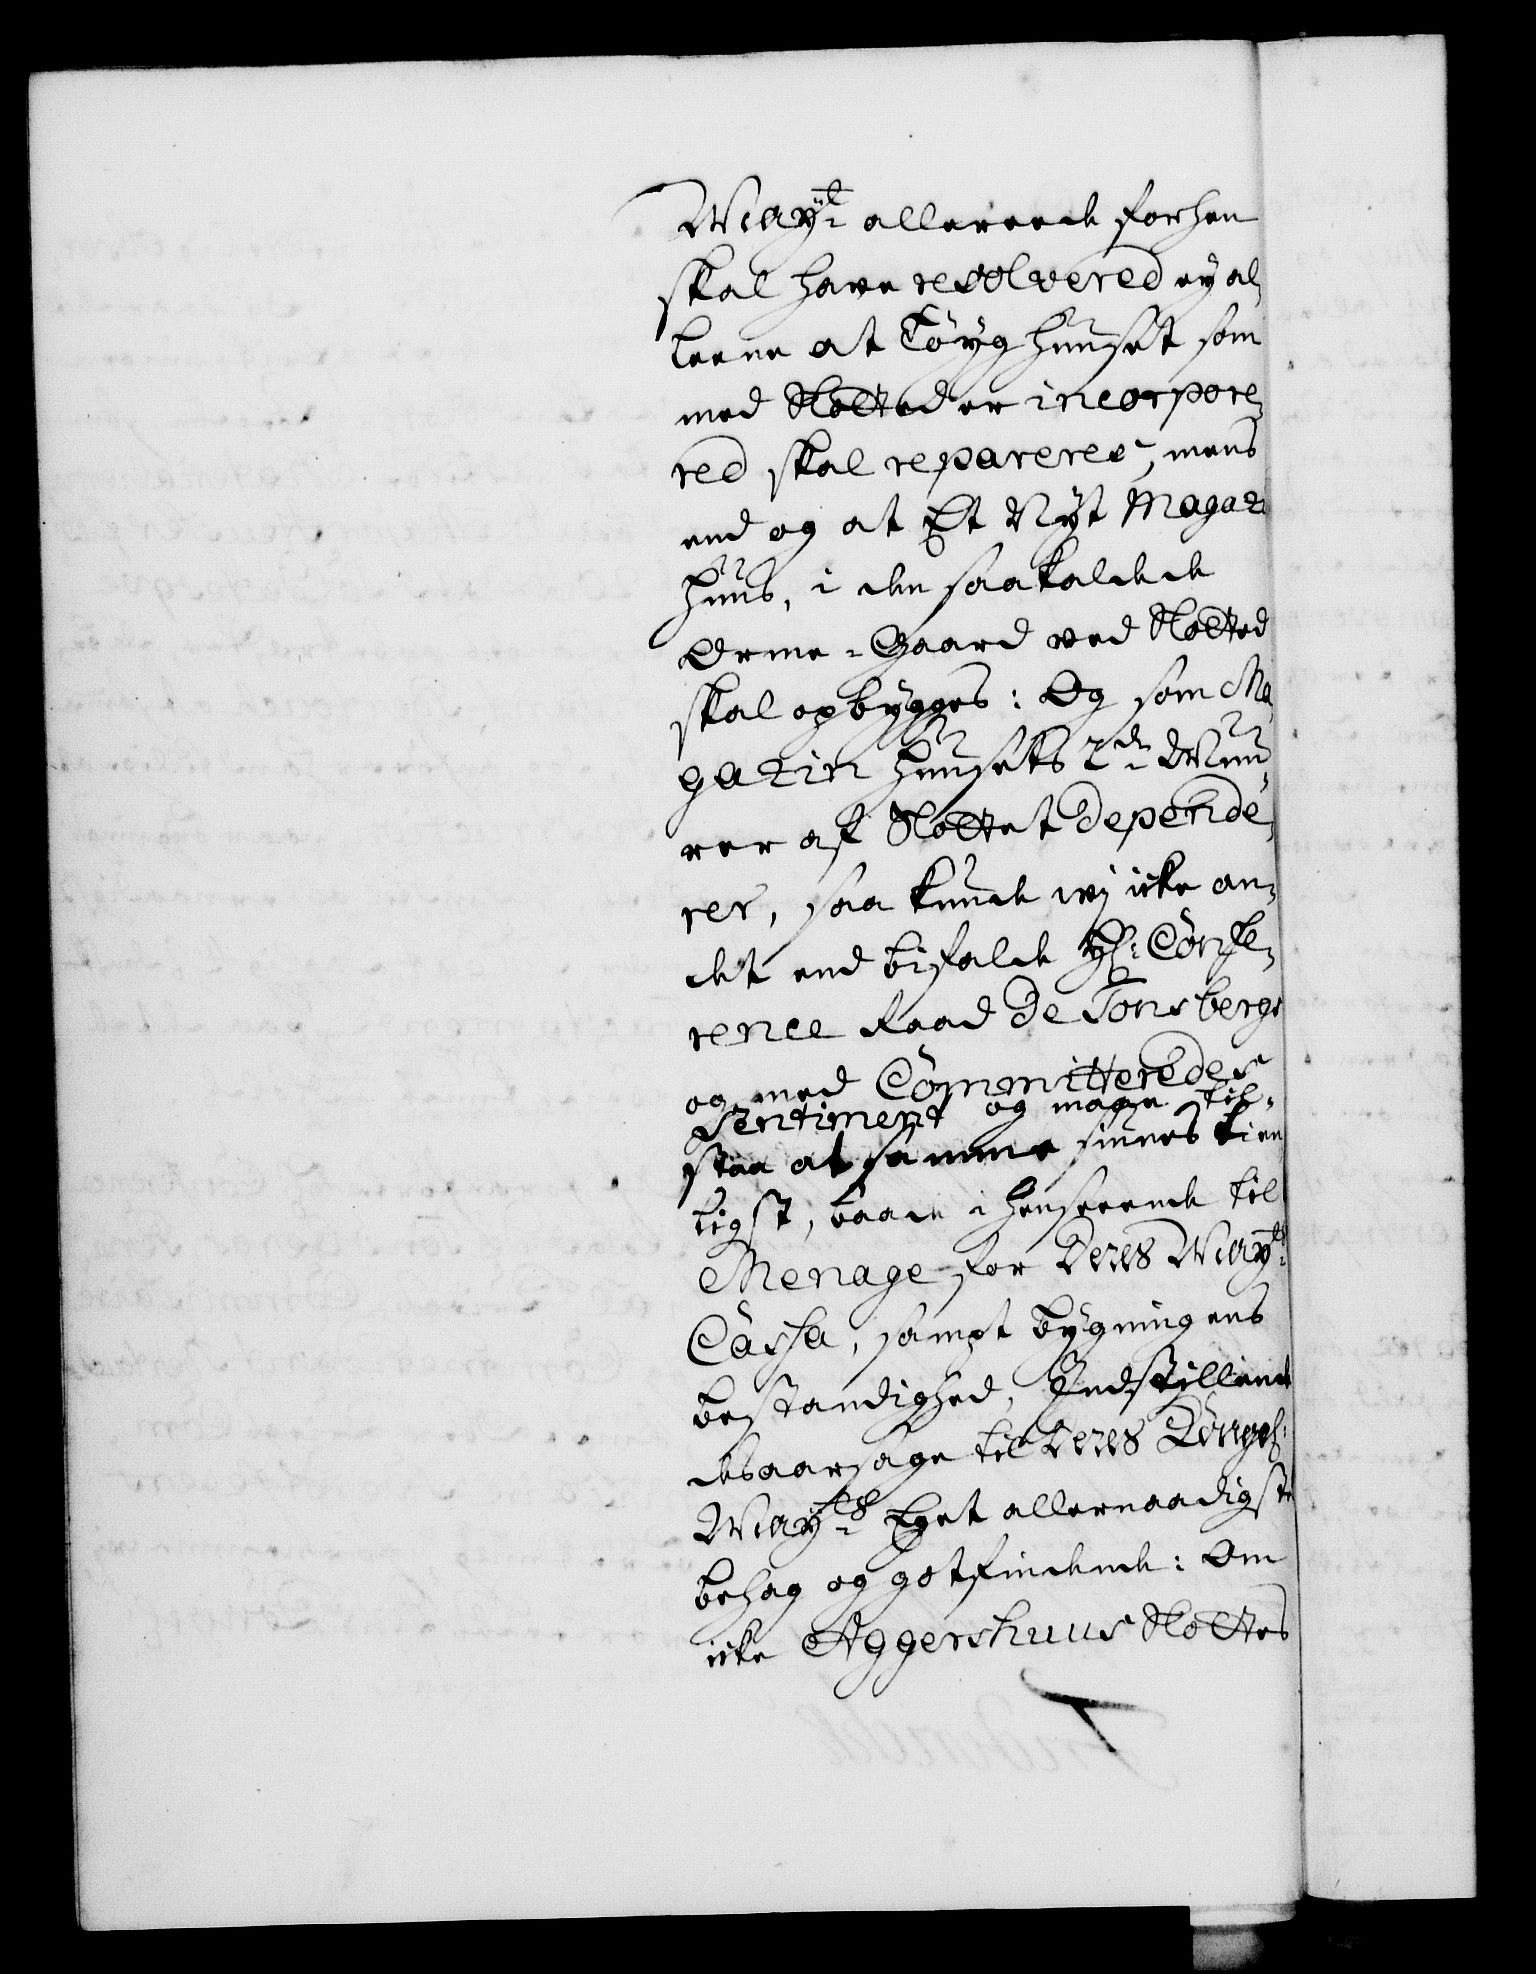 Mayt: allereede forhen
skal have resolvered ey al,
leene at Töyg Huuset som
med Slotted er incorpore,
red skal repareres, mens
end og at Et Nÿt Magaz
huus, i den saakaldede
Orme-Gaard ved Slotted
skal opbygges: Og som Ma,
gazin Huusets 2de Muu,
rer af Slottet depende,
rer, saa kunde wj icke an,
det end bifalde Hr: Confe,
rence Raad De Tonsbergs
og med Committeredes
Sentiment og maae til,
staa at samme siunes tien
ligst, baade i henseende til
Menage for Deres Mayts:
Cassa, sampt bygningens
bestandighed, Indstillende
desaarsage til Deres Kongel:
Mayts: Eget allernaadigste
behag og gotfindende: Om
icke Aggershuus Slottes